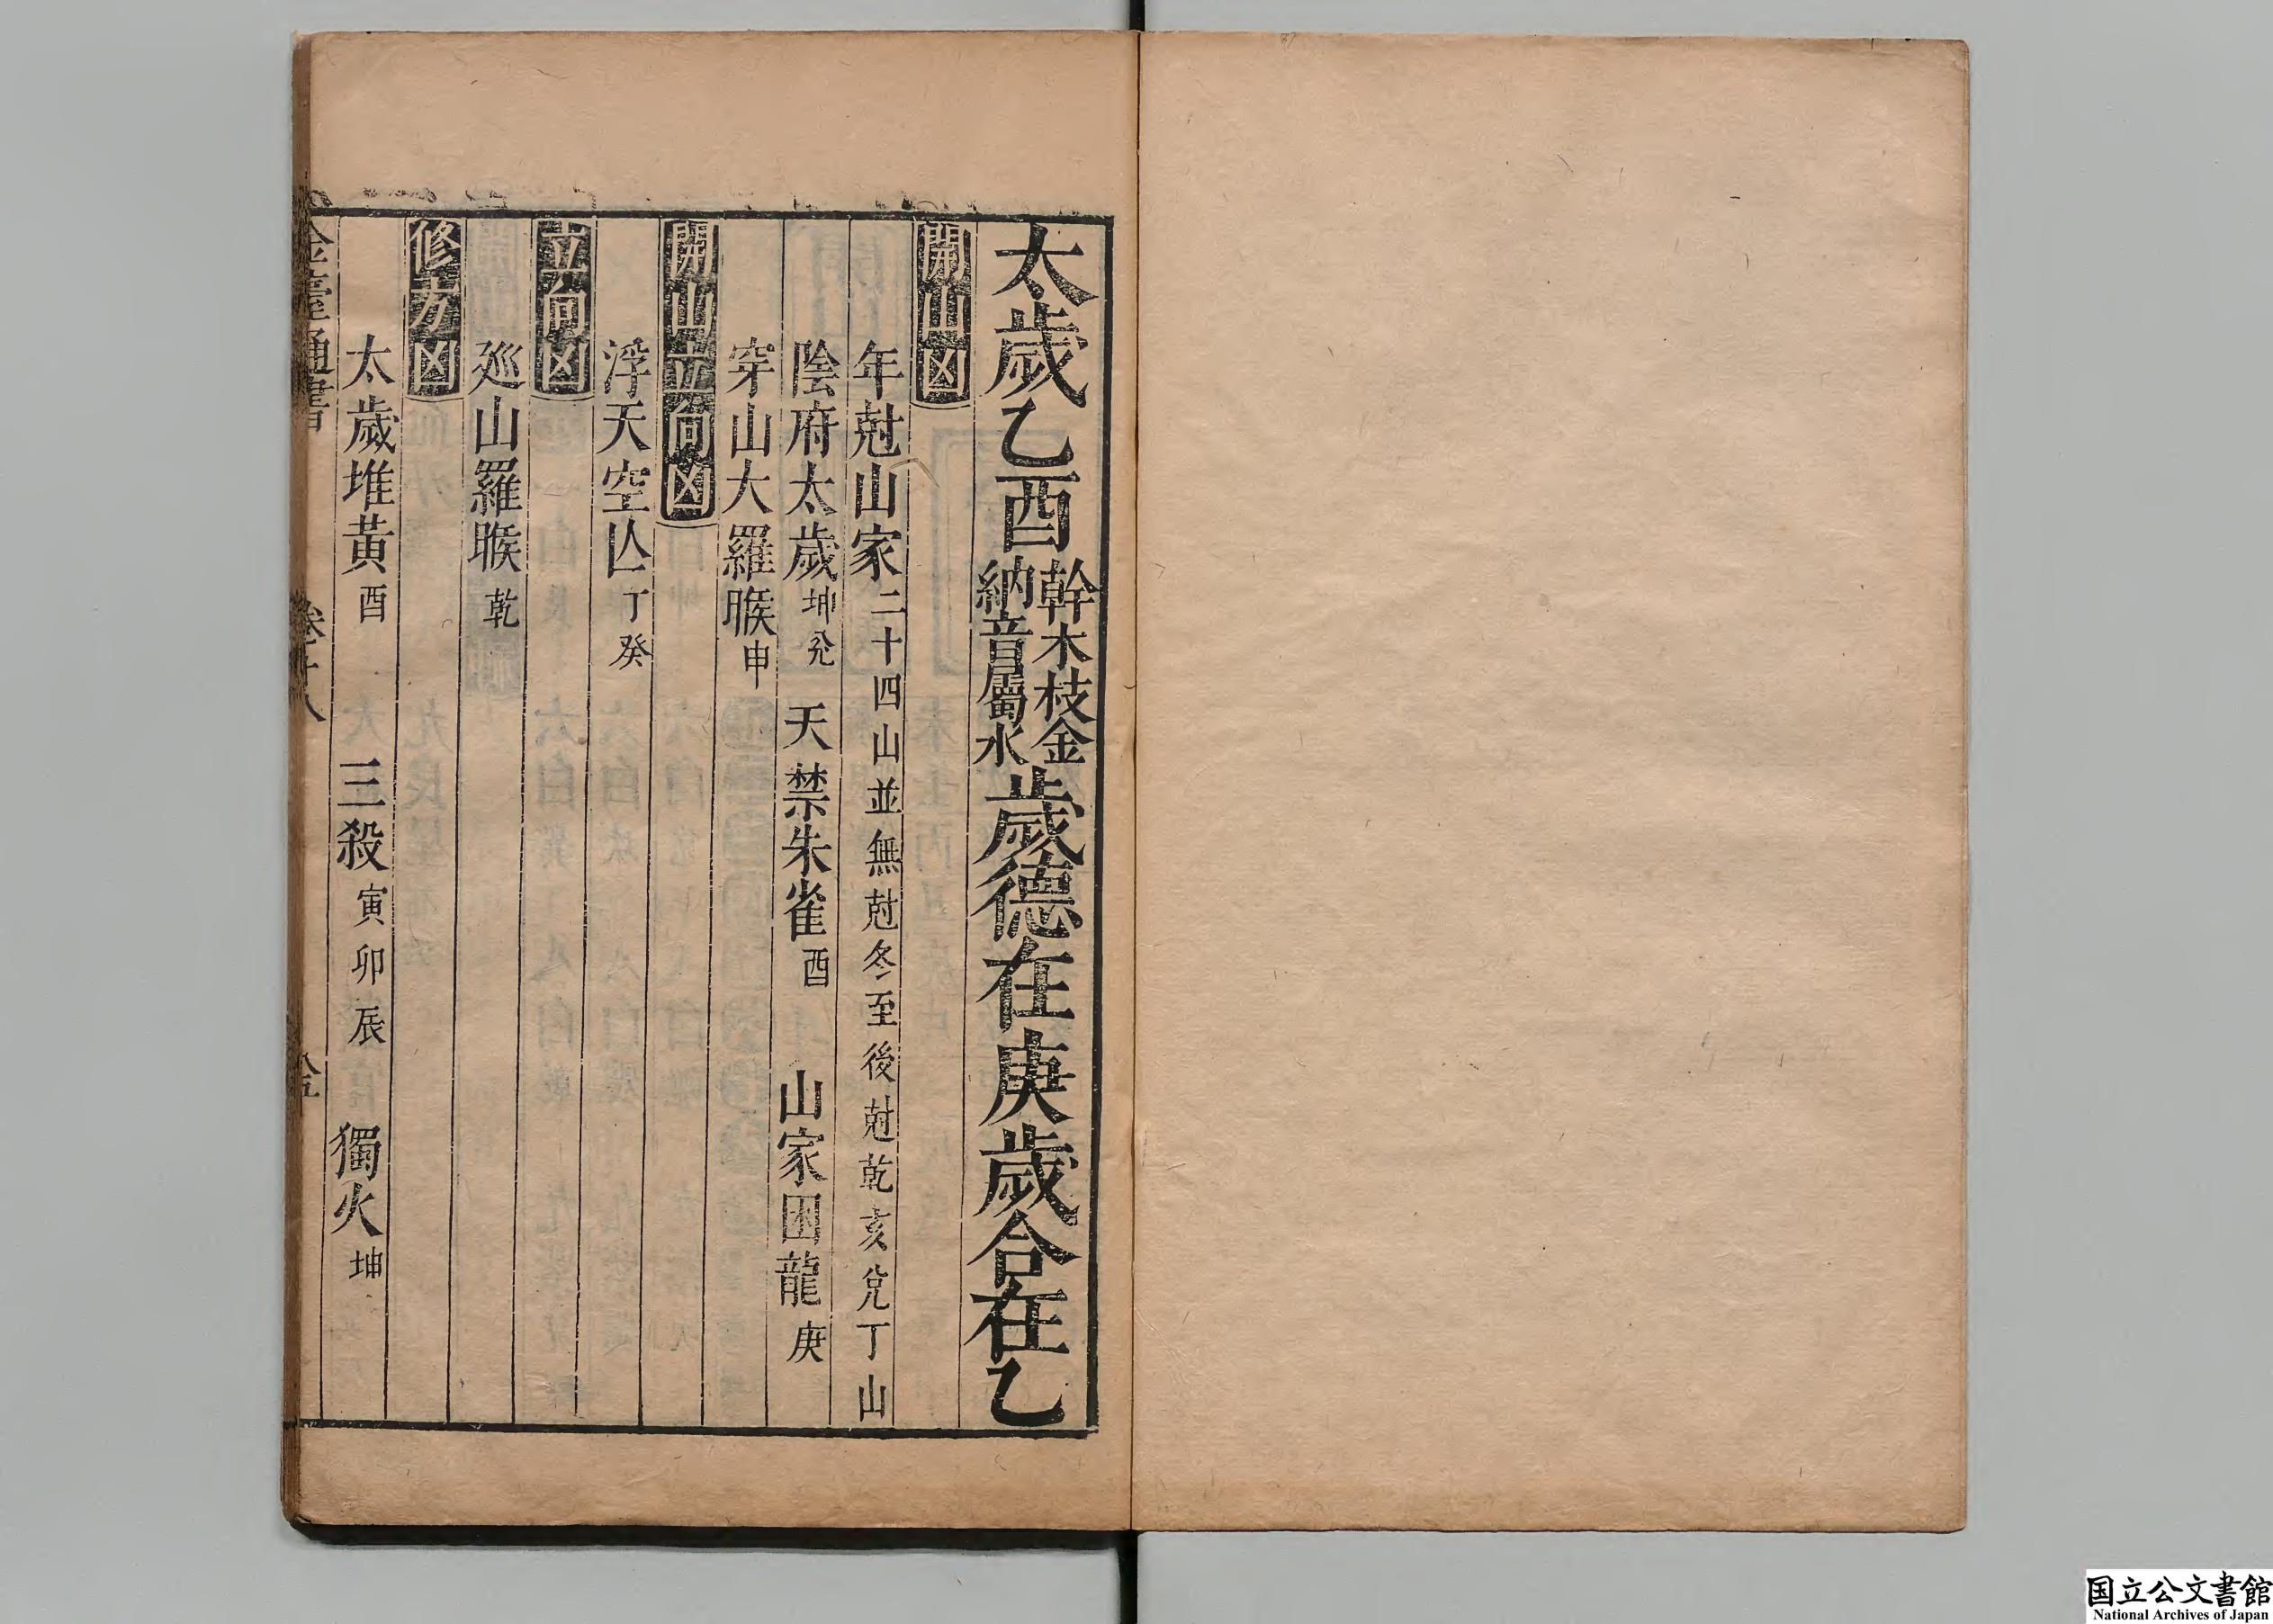 太歲乙酉幹木枝金納音屬水歲德在庚歲合在乙
開山凶
年尅山家二十四山並無尅冬至後尅乾亥兌丁山
陰府太歲坤兌 天禁朱雀酉 山家困龍庚
穿山大羅睺申
開山立向凶
浮天空亾丁癸
立向凶
廵山羅睺乾
修方凶
太歲堆黃酉 三殺寅卯辰 獨火坤
通書
国立公文書館
National Archives of Japan